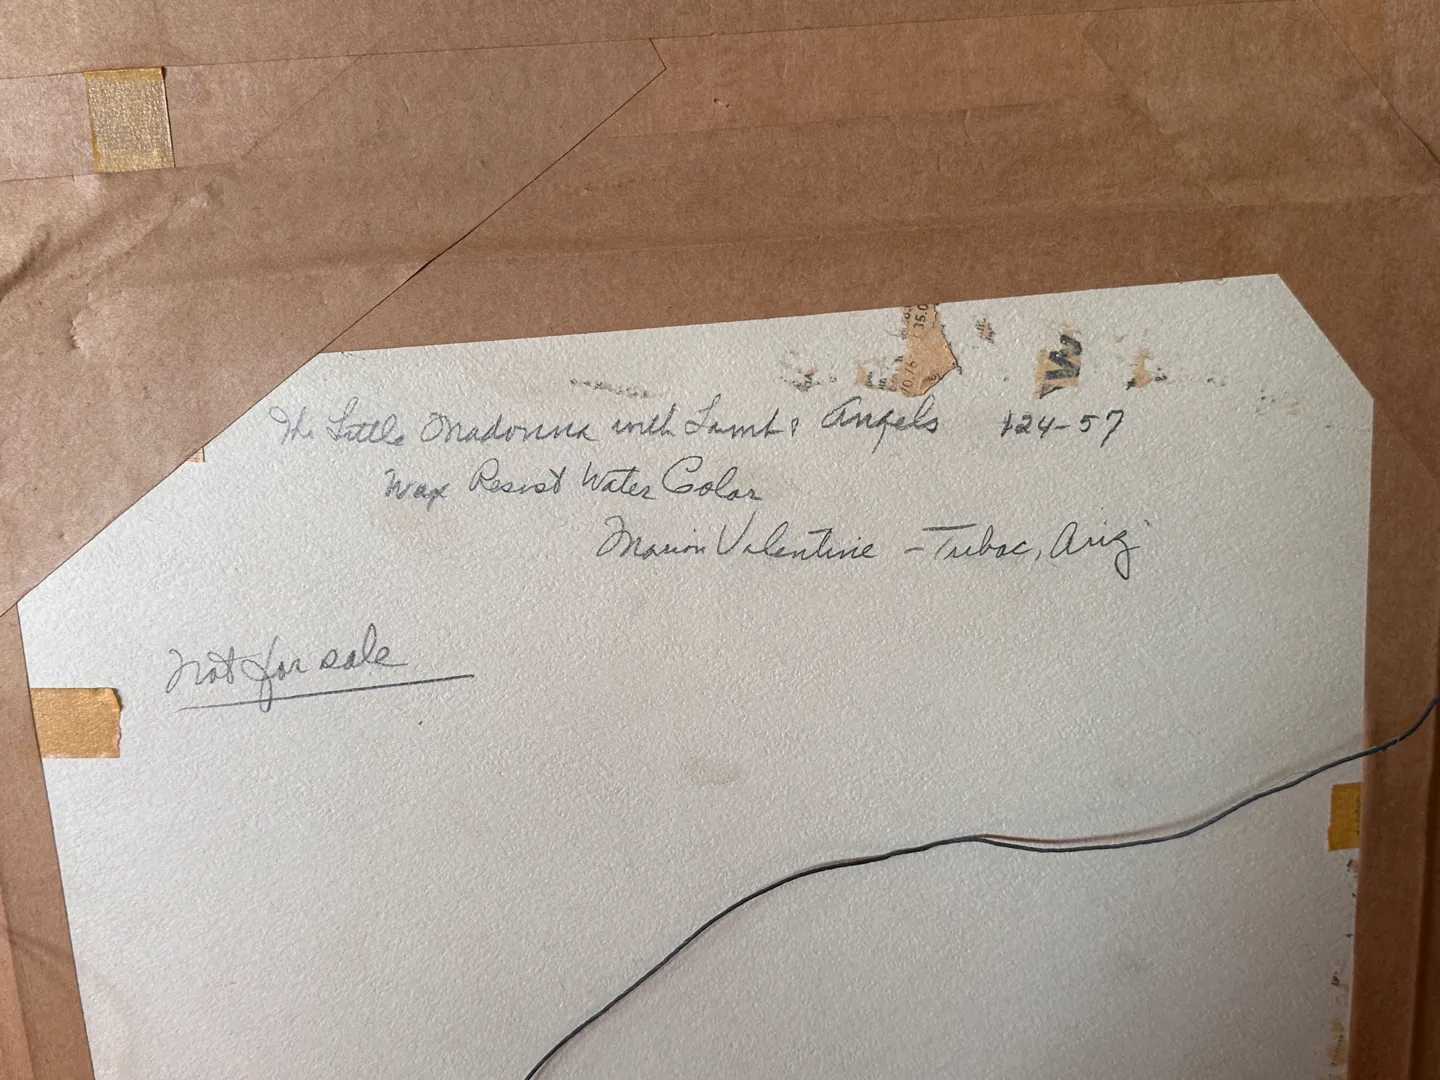 35.0
10.76
W
The Little Madonna with Lamb & Angels $24-57
Wax Resist Water Color
Marion Valentine - Tubac, Ariz
Not for sale